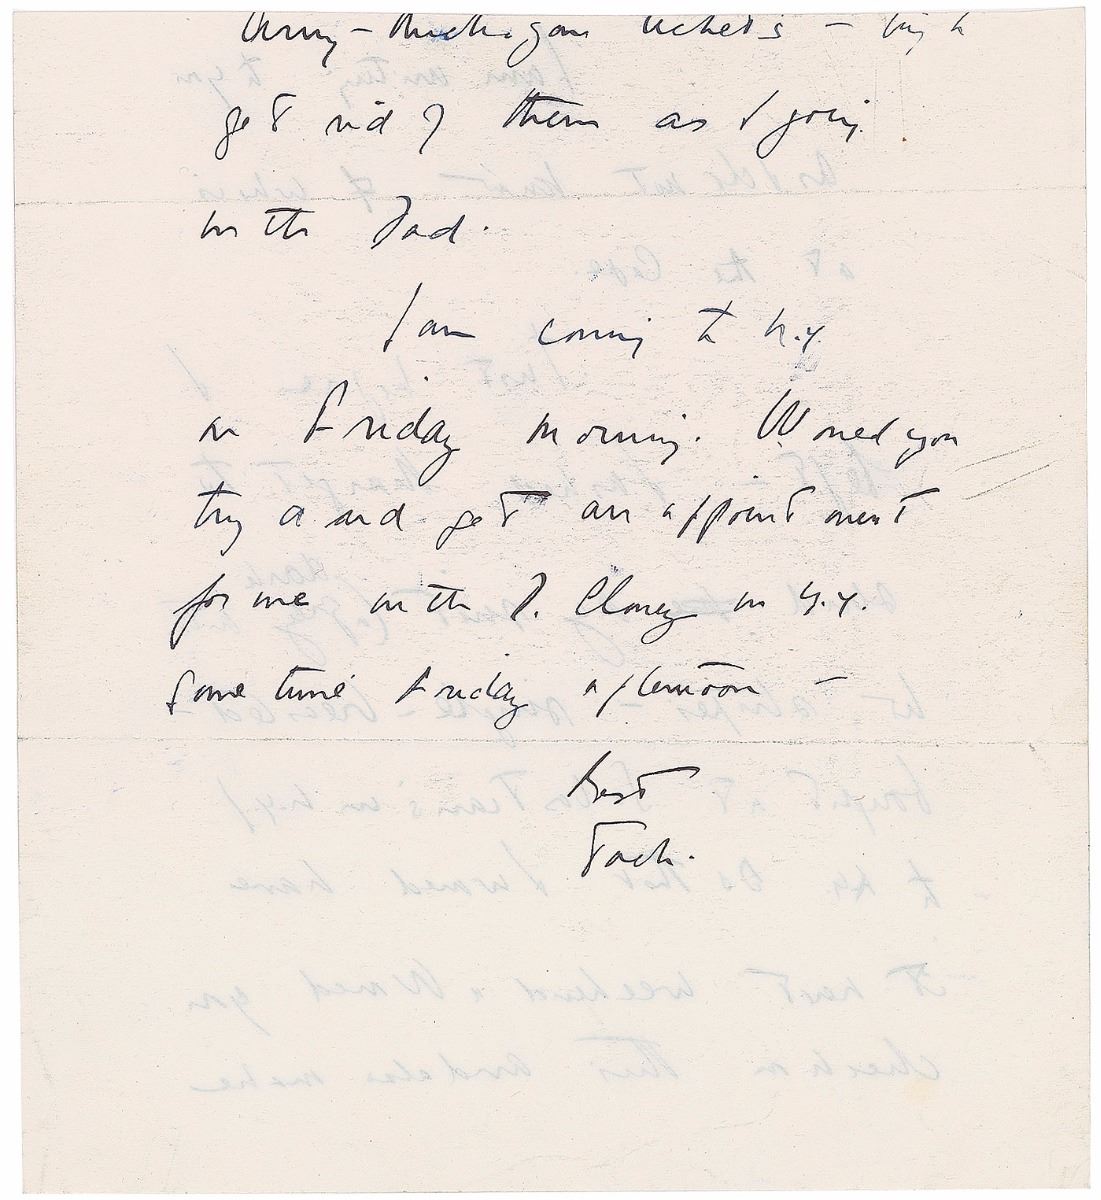 Army - Michigan tickets - try to
get rid of them as I going
with Dad.
I am coming to N.Y.
on Friday morning. Would you
try and get an appointment
for me with D. Cloney in N.Y.
sometime Friday afternoon -
Best
Jack.